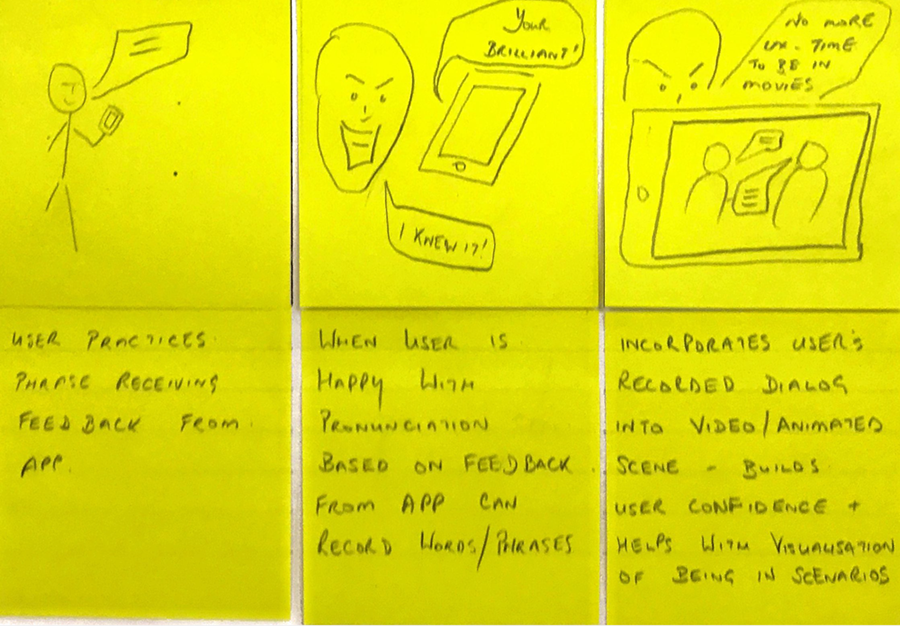 YOUR
BRILLIANT!
I KNEW IT!
NO MORE
UX - TIME
TO BE IN
MOVIES
USER PRACTICES
PHRASE RECEIVING
FEEDBACK FROM
APP.
WHEN USER IS
HAPPY WITH
PRONUNCIATION
BASED ON FEEDBACK
FROM APP CAN
RECORD WORDS/PHRASES
INCORPORATES USER'S
RECORDED DIALOG
INTO VIDEO/ANIMATED
SCENE - BUILDS
USER CONFIDENCE +
HELPS WITH VISUALISATION
OF BEING IN SCENARIOS